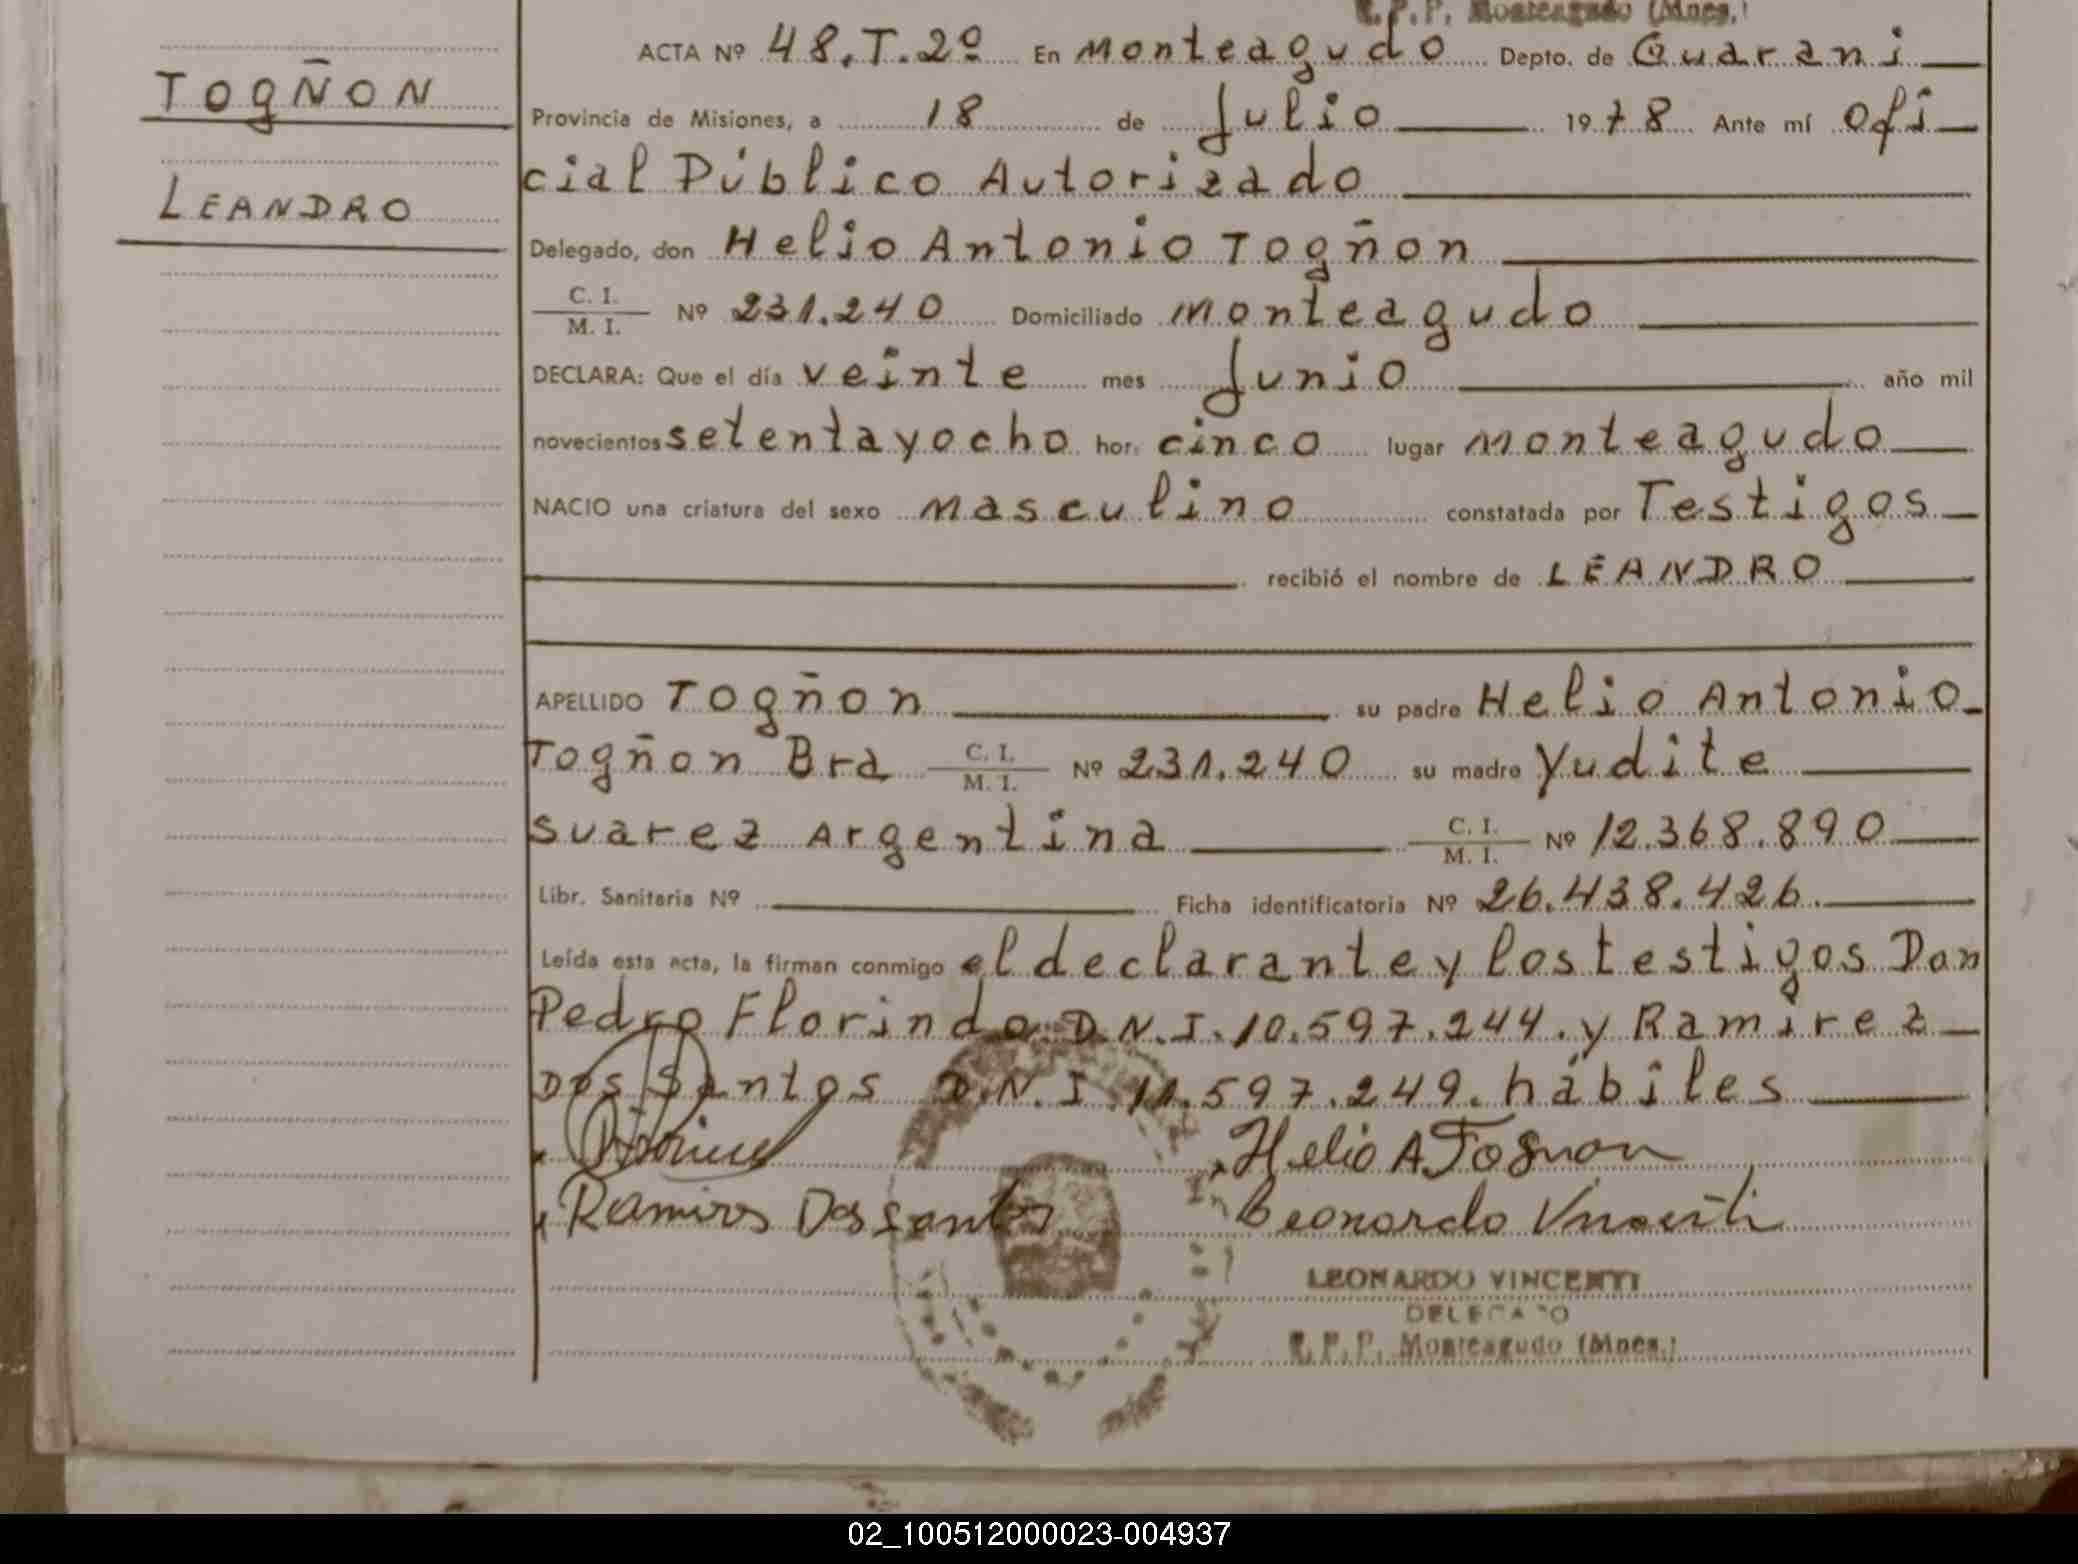 R.P.P. Monteagudo (Mnes.)
ACTA Nº 48.T.2º En Monteagudo Depto. de Guarani
TOGÑON
Provincia de Misiones, a 18 de Julio 1978 Ante mí Ofi
LEANDRO
cial Público Autorizado
Delegado, don Helio Antonio Togñon
C. I.
M. I. Nº 231.240 Domiciliado Monteagudo
DECLARA: Que el día veinte mes Junio año mil
novecientos setenta y ocho hor. cinco lugar Monteagudo
NACIO una criatura del sexo Masculino constatada por Testigos
recibió el nombre de LEANDRO
APELLIDO Togñon su padre Helio Antonio
Togñon Bra C. I. M. I. Nº 231.240 su madre Yudite
Suarez Argentina C. I. M. I. Nº 12.368.890
Libr. Sanitaria Nº Ficha identificatoria Nº 26.438.426.
Leída esta acta, la firman conmigo el declarante y los testigos Don
Pedro Florindo D.N.I. 10.597.244. y Ramirez
Dos Santos D.N.I. 11.597.249. hábiles
Helio A Tognon
Ramires Dos santos Leonardo Vincenti
LEONARDO VINCENTI
DELEGADO
R.P.P. Monteagudo (Mnes.)
02_100512000023-004937